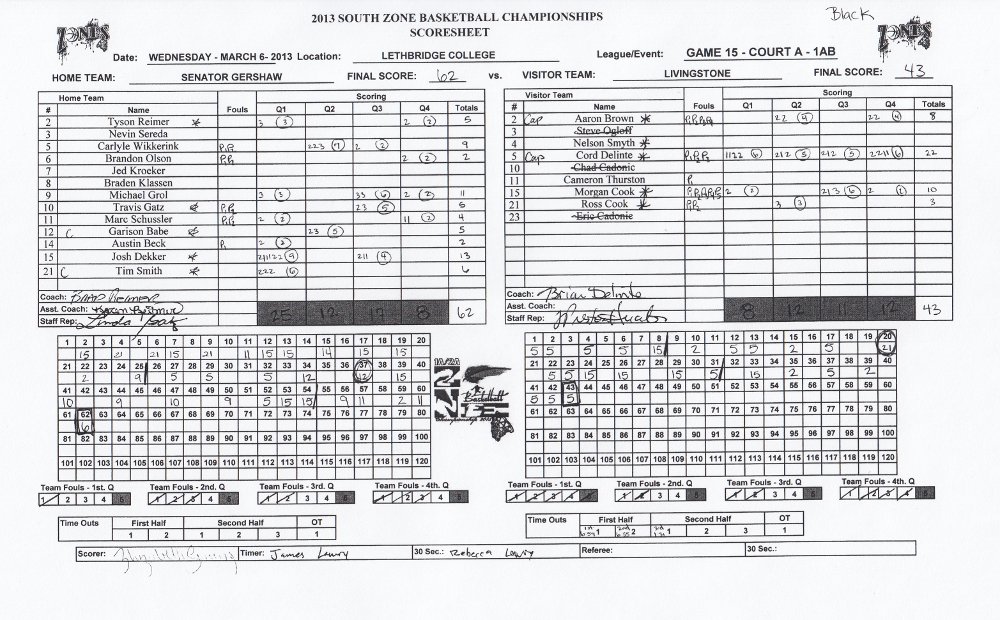 2013 SOUTH ZONE BASKETBALL CHAMPIONSHIPS
SCORESHEET
Black
Date: WEDNESDAY - MARCH 6- 2013 Location: LETHBRIDGE COLLEGE League/Event: GAME 15 - COURT A - 1AB
HOME TEAM: SENATOR GERSHAW FINAL SCORE: 62 vs. VISITOR TEAM: LIVINGSTONE FINAL SCORE: 43
Home Team Scoring
# Name Fouls Q1 Q2 Q3 Q4 Totals
2 Tyson Reimer 3 (3) 2 (2) 5
3 Nevin Sereda
5 Carlyle Wikkerink P1 P2 223 (7) 2 (2) 9
6 Brandon Olson P1 P2 2 (2) 2
7 Jed Kroeker
8 Braden Klassen
9 Michael Grol 3 (3) 33 (6) 2 (2) 11
10 Travis Gatz P1 P2 23 (5) 5
11 Marc Schussler P1 P2 2 (2) 11 (2) 4
12 C Garison Babe 23 (5) 5
14 Austin Beck P 2 (2) 2
15 Josh Dekker 241122 (9) 211 (4) 13
21 C Tim Smith 222 (6) 6
Coach: Brad Reimer
Asst. Coach:
Staff Rep: Linda
25 12 17 8 62
Visitor Team Scoring
# Name Fouls Q1 Q2 Q3 Q4 Totals
2 Cap Aaron Brown 22 (4) 22 (4) 8
3 Steve Ogloff
4 Nelson Smyth
5 Cap Cord Delinte P1 P2 P3 1122 (6) 212 (5) 212 (5) 2211 (6) 22
10 Chad Cadonic
11 Cameron Thurston P
15 Morgan Cook 2 (2) 213 (6) 2 (2) 10
21 Ross Cook P1 P2 3 (3) 3
23 Eric Cadonic
Coach: Brian Delinte
Asst. Coach:
Staff Rep:
8 12 12 43
1 2 3 4 5 6 7 8 9 10 11 12 13 14 15 16 17 18 19 20
15 21 21 15 21 11 15 15 14 15 15 15
21 22 23 24 25 26 27 28 29 30 31 32 33 34 35 36 37 38 39 40
2 9 5 5 5 12 12 15
41 42 43 44 45 46 47 48 49 50 51 52 53 54 55 56 57 58 59 60
10 9 10 9 5 15 15 9 11 2 11
61 62 63 64 65 66 67 68 69 70 71 72 73 74 75 76 77 78 79 80
6
81 82 83 84 85 86 87 88 89 90 91 92 93 94 95 96 97 98 99 100
101 102 103 104 105 106 107 108 109 110 111 112 113 114 115 116 117 118 119 120
1A/2A
Basketball
Championships
1 2 3 4 5 6 7 8 9 10 11 12 13 14 15 16 17 18 19 20
5 5 5 5 15 2 5 5 2 5 21
21 22 23 24 25 26 27 28 29 30 31 32 33 34 35 36 37 38 39 40
5 5 15 15 15 5 15 2 5 2
41 42 43 44 45 46 47 48 49 50 51 52 53 54 55 56 57 58 59 60
5 5 5
61 62 63 64 65 66 67 68 69 70 71 72 73 74 75 76 77 78 79 80
81 82 83 84 85 86 87 88 89 90 91 92 93 94 95 96 97 98 99 100
101 102 103 104 105 106 107 108 109 110 111 112 113 114 115 116 117 118 119 120
Team Fouls - 1st. Q Team Fouls - 2nd. Q Team Fouls - 3rd. Q Team Fouls - 4th. Q
1 2 3 4 5 1 2 3 4 5 1 2 3 4 5 1 2 3 4 5
Team Fouls - 1st. Q Team Fouls - 2nd. Q Team Fouls - 3rd. Q Team Fouls - 4th. Q
1 2 3 4 5 1 2 3 4 5 1 2 3 4 5 1 2 3 4 5
Time Outs First Half Second Half OT
1 2 1 2 3 1
Time Outs First Half Second Half OT
1 2 1 2 3 1
Scorer: Timer: James Lowry 30 Sec.: Rebecca Lowry Referee: 30 Sec.: